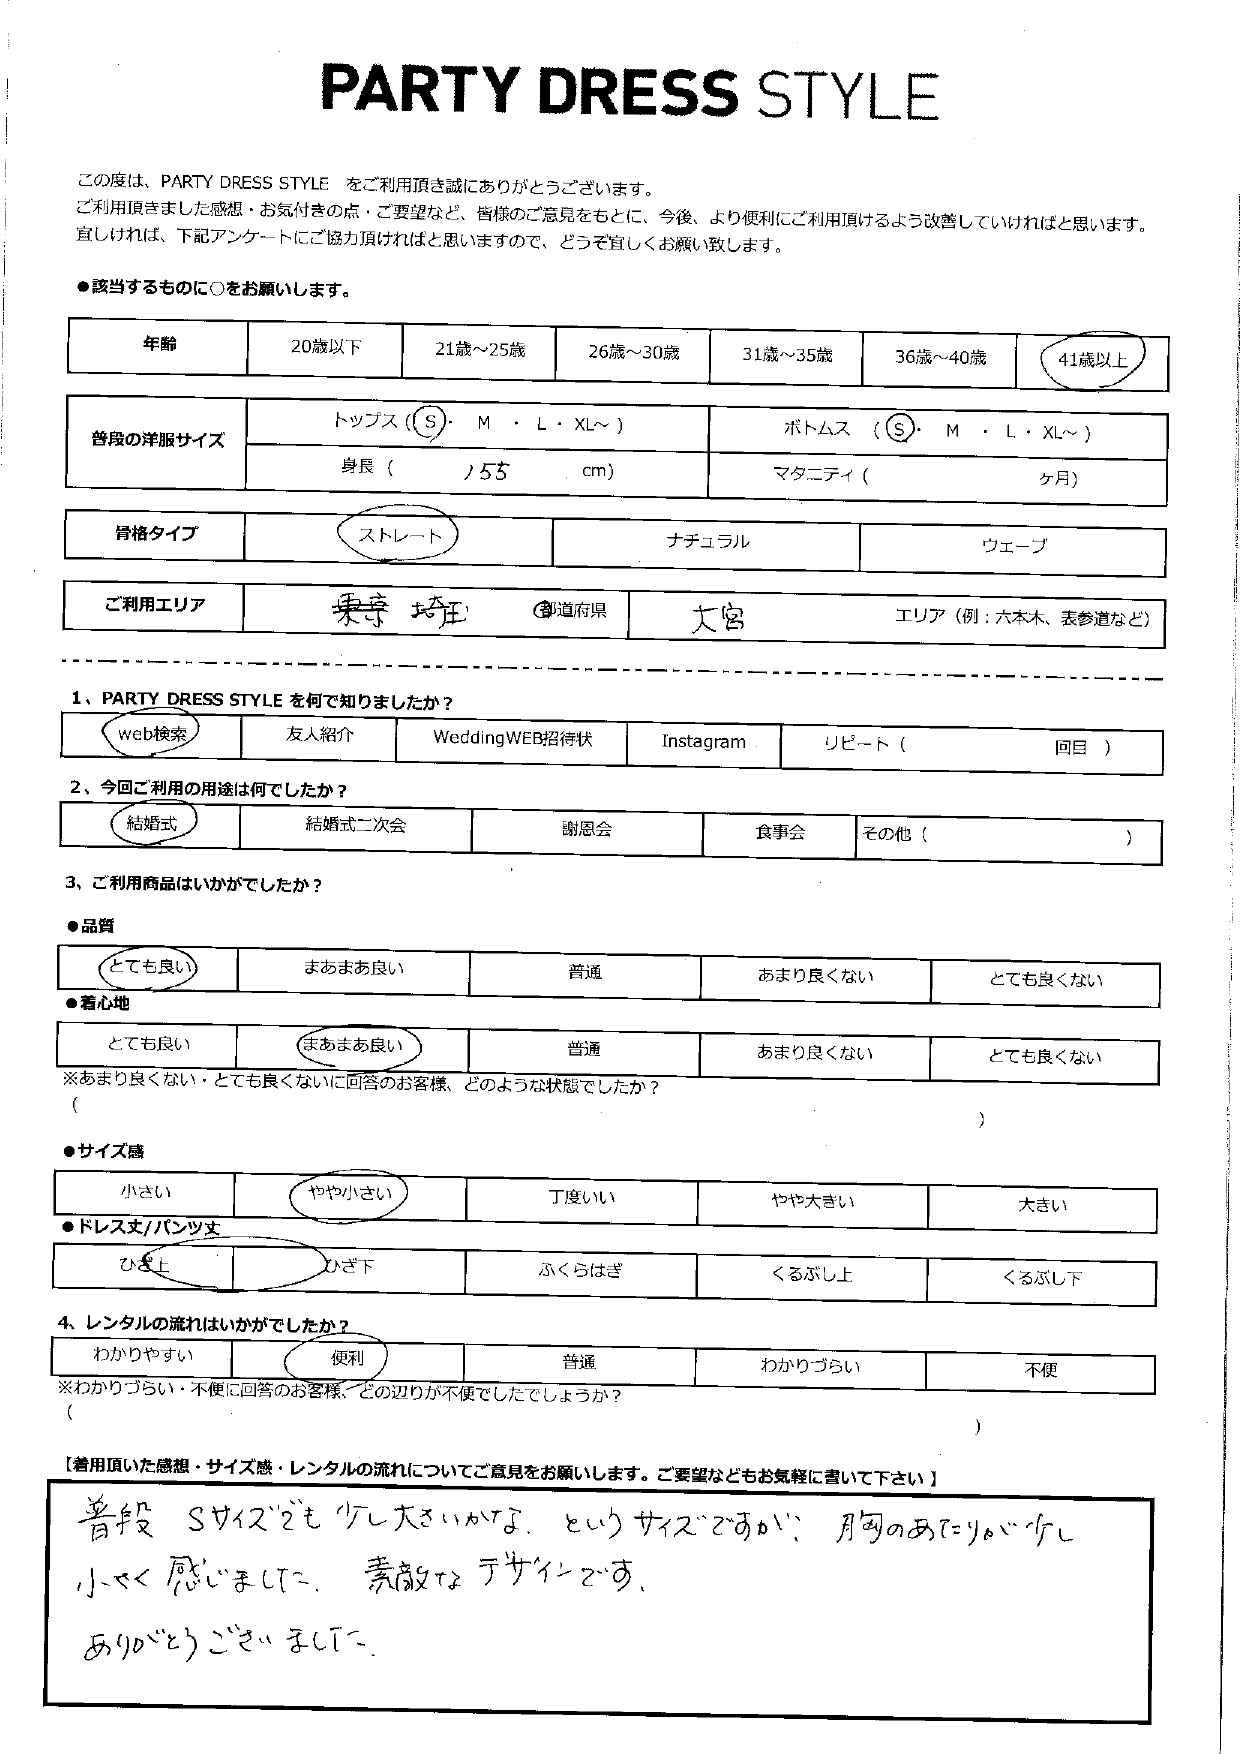 PARTY DRESS STYLE
この度は、PARTY DRESS STYLE をご利用頂き誠にありがとうございます。
ご利用頂きました感想・お気付きの点・ご要望など、皆様のご意見をもとに、今後、より便利にご利用頂けるよう改善していければと思います。
宜しければ、下記アンケートにご協力頂ければと思いますので、どうぞ宜しくお願い致します。
●該当するものに○をお願いします。
年齢 20歳以下 21歳～25歳 26歳～30歳 31歳～35歳 36歳～40歳 41歳以上
普段の洋服サイズ トップス (S・ M ・ L・ XL～ ) ボトムス (S・ M ・ L・ XL～ )
身長 ( 155 cm) マタニティ ( ヶ月)
骨格タイプ ストレート ナチュラル ウェーブ
ご利用エリア 東京 埼玉 都道府県 大宮 エリア（例：六本木、表参道など）
1、PARTY DRESS STYLE を何で知りましたか？
web検索 友人紹介 WeddingWEB招待状 Instagram リピート ( 回目 )
2、今回ご利用の用途は何でしたか？
結婚式 結婚式二次会 謝恩会 食事会 その他 ( )
3、ご利用商品はいかがでしたか？
●品質
とても良い まあまあ良い 普通 あまり良くない とても良くない
●着心地
とても良い まあまあ良い 普通 あまり良くない とても良くない
※あまり良くない・とても良くないに回答のお客様、どのような状態でしたか？
( )
●サイズ感
小さい やや小さい 丁度いい やや大きい 大きい
●ドレス丈/パンツ丈
ひざ上 ひざ下 ふくらはぎ くるぶし上 くるぶし下
4、レンタルの流れはいかがでしたか？
わかりやすい 便利 普通 わかりづらい 不便
※わかりづらい・不便に回答のお客様、どの辺りが不便でしたでしょうか？
( )
【着用頂いた感想・サイズ感・レンタルの流れについてご意見をお願いします。ご要望などもお気軽に書いて下さい 】
普段 Sサイズでも少し大きいかな、というサイズですが、胸のあたりが少し
小さく感じました。素敵なデザインです。
ありがとうございました。